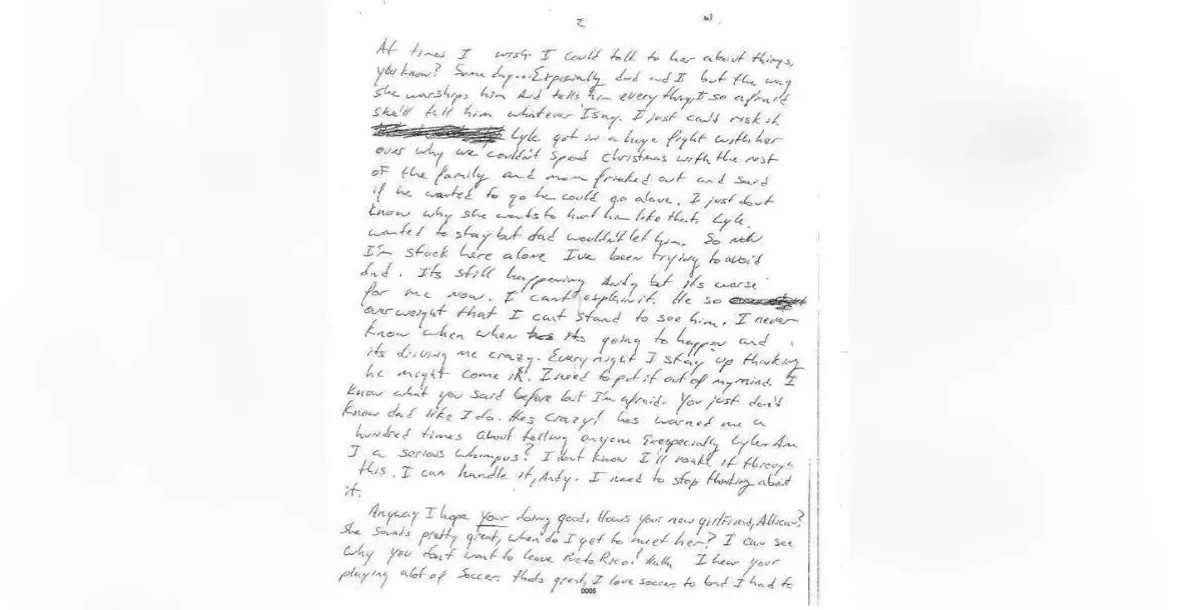 2
At times I wish I could talk to her about things,
you know? Some day... Exspecially dad and I but the way
she warships him and tells him everything I so afraid
she'll tell him whatever I say. I just can't risk it
Lyle got in a huge fight with her
over why we couldn't spend Christmas with the rest
of the family and mom freaked out and said
if he wanted to go he could go alone. I just dont
know why she wants to hurt him like that. Lyle
wanted to stay but dad wouldn't let him. So now
I'm stuck here alone I've been trying to avoid
dad. Its still happening Andy but its worse
for me now. I can't explain it. He so
overweight that I can't stand to see him. I never
know when when its going to happen and
its driving me crazy. Every night I stay up thinking
he might come in. I need to put it out of my mind. I
know what you said before but I'm afraid. You just don't
know dad like I do. Hes crazy! hes warned me a
hundred times about telling anyone Exespecially Lyle. Am
I a serious whimpus? I dont know I'll make it through
this. I can handle it, Andy. I need to stop thinking about
it.
Anyway I hope your doing good. Hows your new girlfriend,
She sounds pretty great, when do I get to meet her? I can see
why you don't want to leave Puerto Rico! I hear your
playing alot of soccer. thats great, I love soccer to but I had to
0005